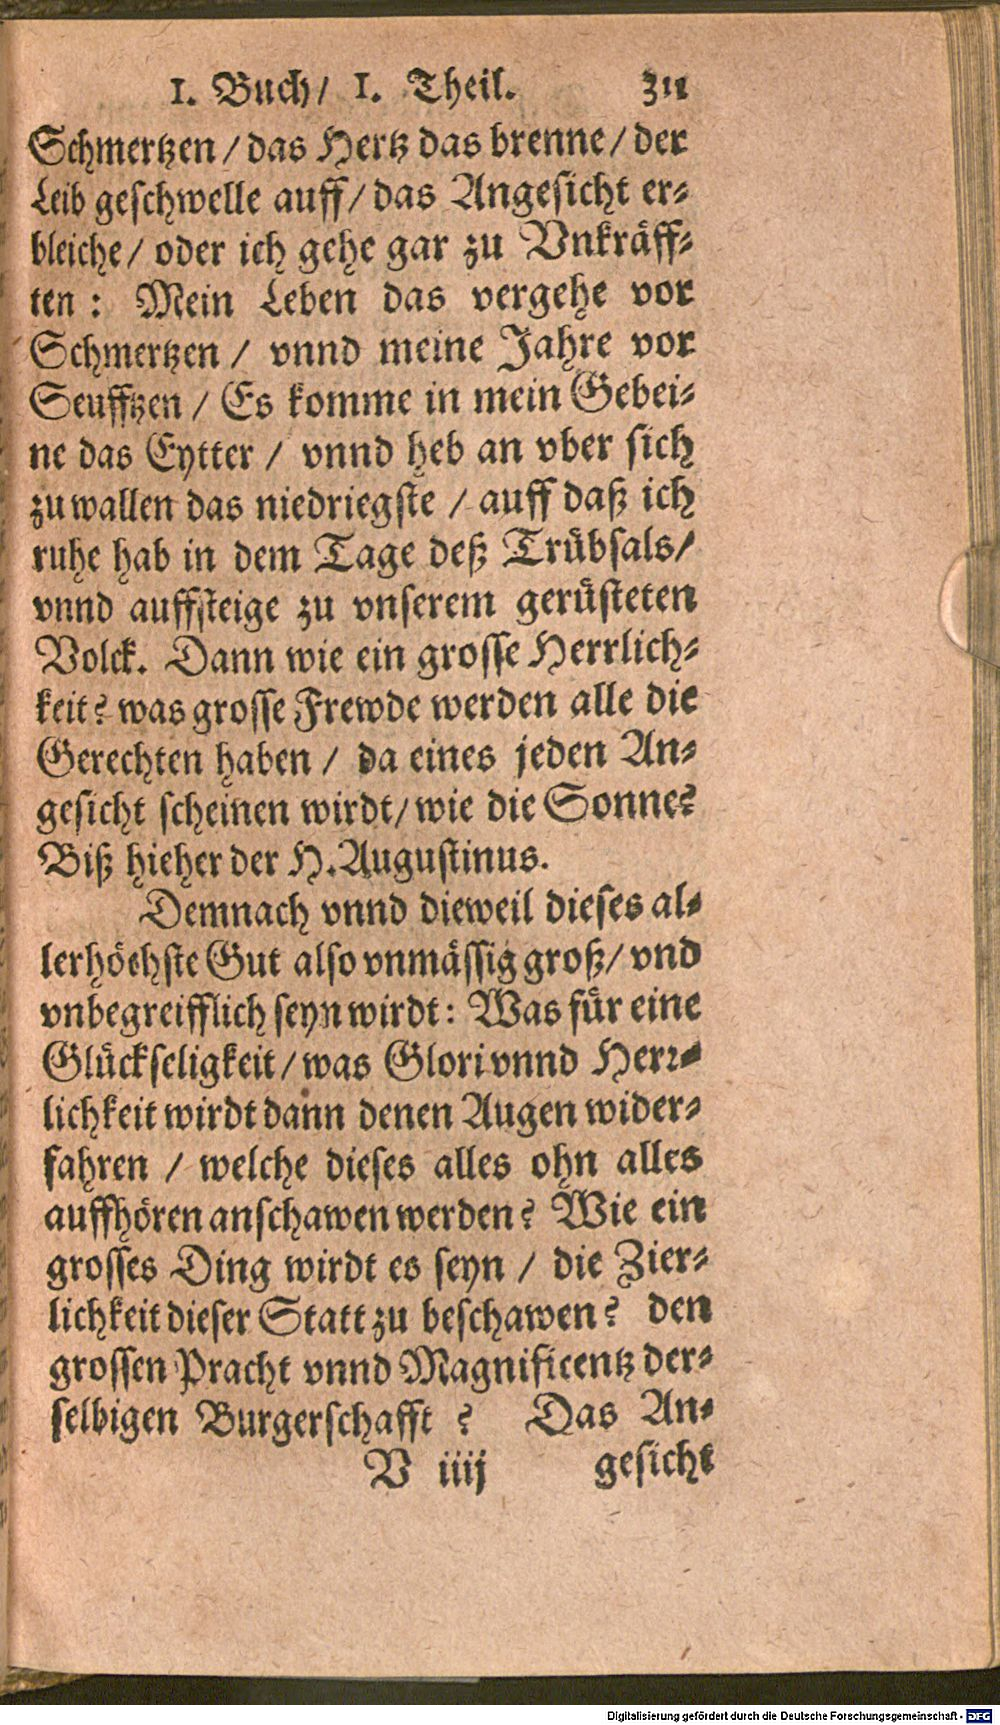 1. Buch/ 1. Theil. 311
Schmertzen/das Hertz das brenne/der
Leib geschwelle auff/das Angesicht er-
bleiche/ oder ich gehe gar zu Vnkräff-
ten : Mein Leben das vergehe vor
Schmertzen / vnnd meine Jahre vor
Seufftzen / Es komme in mein Gebei-
ne das Eytter / vnnd heb an vber sich
zu wallen das niedriegste / auff daß ich
ruhe hab in dem Tage deß Trübsals/
vnnd auffsteige zu vnserem gerüsteten
Volck. Dann wie ein grosse Herrlich-
keit? was grosse Frewde werden alle die
Gerechten haben / da eines jeden An-
gesicht scheinen wirdt/wie die Sonne?
Biß hieher der H. Augustinus.
Demnach vnnd dieweil dieses al-
lerhöchste Gut also vnmässig groß/ vnd
vnbegreifflich seyn wirdt: Was für eine
Glückseligkeit/was Glori vnnd Herr-
lichkeit wirdt dann denen Augen wider-
fahren / welche dieses alles ohn alles
auffhören anschawen werden? Wie ein
grosses Ding wirdt es seyn / die Zier-
lichkeit dieser Statt zu beschawen? den
grossen Pracht vnnd Magnificentz der-
selbigen Burgerschafft ? Das An-
V iiij gesicht
Digitalisierung gefördert durch die Deutsche Forschungsgemeinschaft - DFG